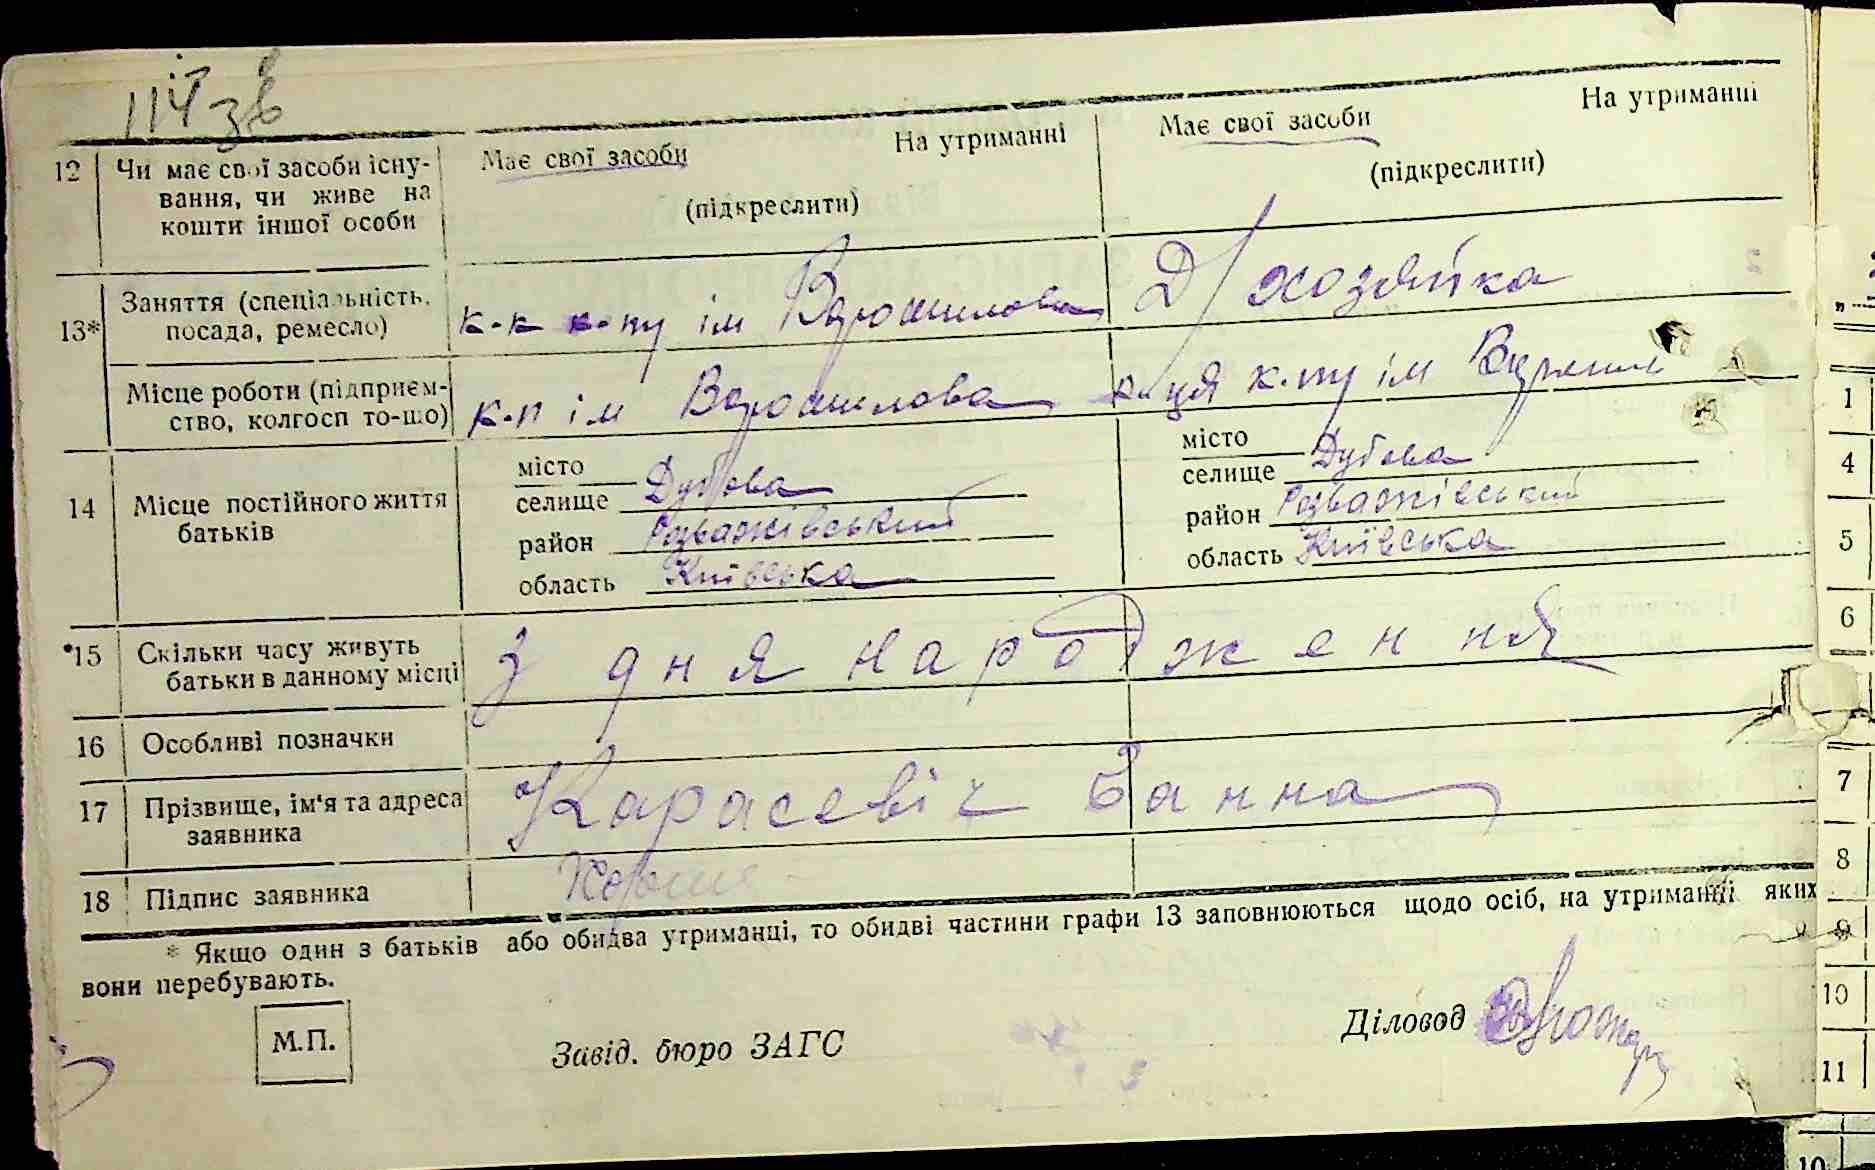 114 зв
На утриманні На утриманні
12 Чи має свої засоби існу- Має свої засоби Має свої засоби
вання, чи живе на (підкреслити) (підкреслити)
кошти іншої особи
13* Заняття (спеціальність, к-к к-пу ім Ворошилова Д/хозяйка
посада, ремесло)
Місце роботи (підприєм- к-п ім Ворошилова к-ця к-пу ім
ство, колгосп то-що)
14 Місце постійного життя
батьків
місто місто
селище Дубова селище Дубова
район Розважівський район Розважівський
область Київська область Київська
*15 Скільки часу живуть З дня народження
батьки в данному місці
16 Особливі позначки
17 Прізвище, ім'я та адреса Карасевіч Ганна
заявника
18 Підпис заявника
* Якщо один з батьків або обидва утриманці, то обидві частини графи 13 заповнюються щодо осіб, на утриманні яких
вони перебувають.
М.П. Завід. бюро ЗАГС Діловод
1
4
5
6
7
8
9
10
11
10